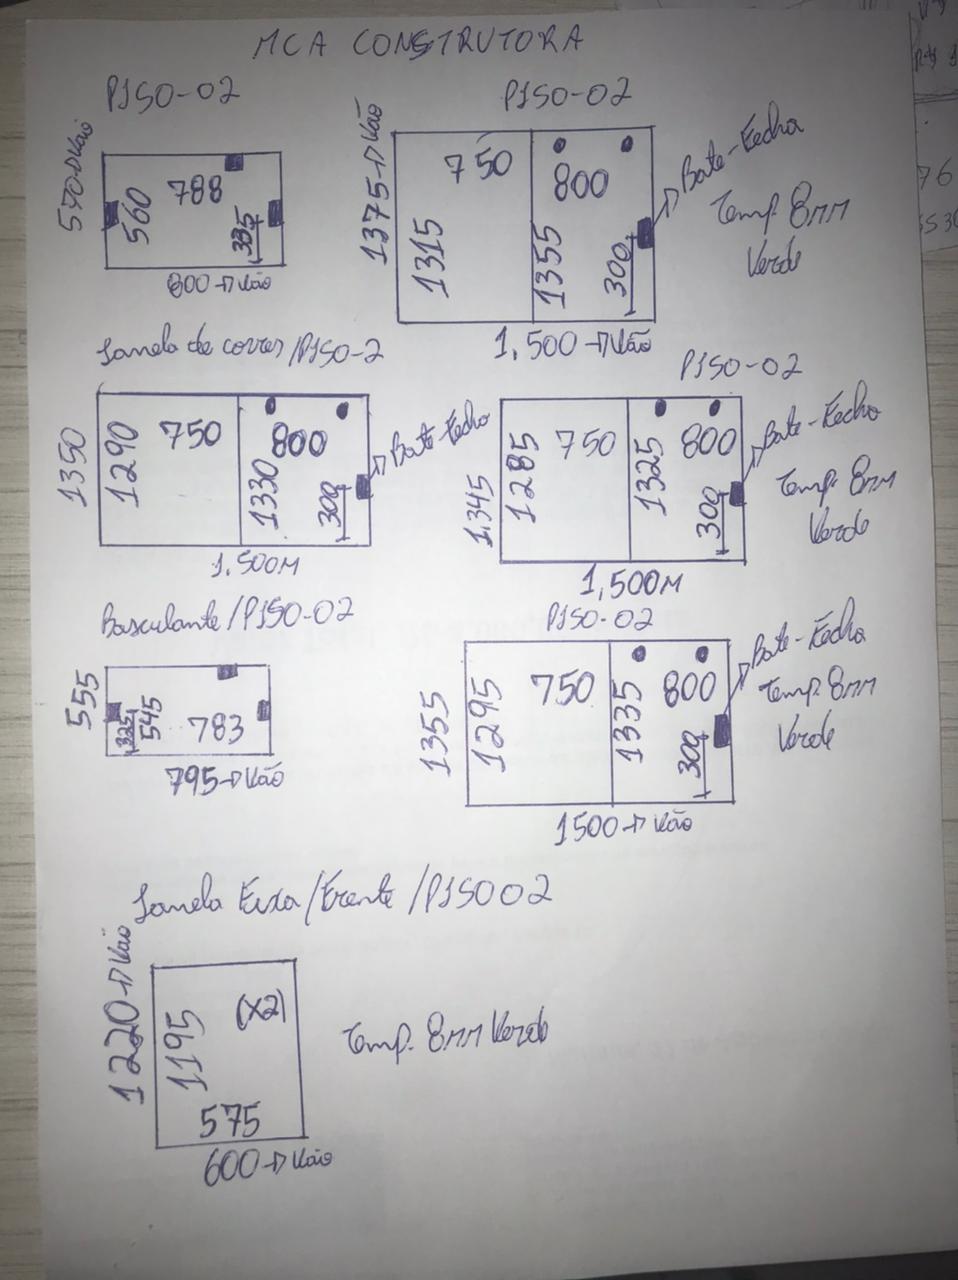 MCA CONSTRUTORA
PISO-02
570→Vão
560
788
335
800→Vão
PISO-02
1375→Vão
750
1315
800
1355
300
Bate-Fecha
Temp. 8mm
Verde
1,500→Vão
Janela de correr/PISO-2
1350
1290
750
800
1330
300
Bate-Fecho
1,500M
PISO-02
1,345
1285
750
1325
800
300
Bate-Fecho
Temp. 8mm
Verde
1,500M
Basculante/PISO-02
555
325
545
783
795→Vão
PISO-02
1355
1295
750
1335
800
300
Bate-Fecha
Temp. 8mm
Verde
1500→Vão
Janela Fixa/Frente/PISO02
1220→Vão
1195
(x2)
575
600→Vão
Temp. 8mm Verde